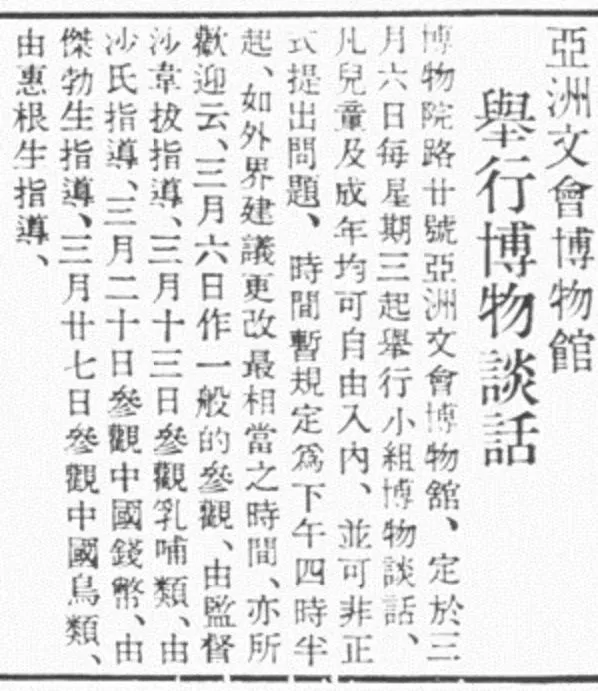 亞洲文會博物館
舉行博物談話
博物院路廿號亞洲文會博物舘、定於三
月六日每星期三起舉行小組博物談話、
凡兒童及成年均可自由入內、並可非正
式提出問題、時間暫規定爲下午四時半
起、如外界建議更改最相當之時間、亦所
歡迎云、三月六日作一般的參觀、由監督
沙韋拔指導、三月十三日參觀乳哺類、由
沙氏指導、三月二十日參觀中國錢幣、由
傑勃生指導、三月廿七日參觀中國鳥類、
由惠根生指導、